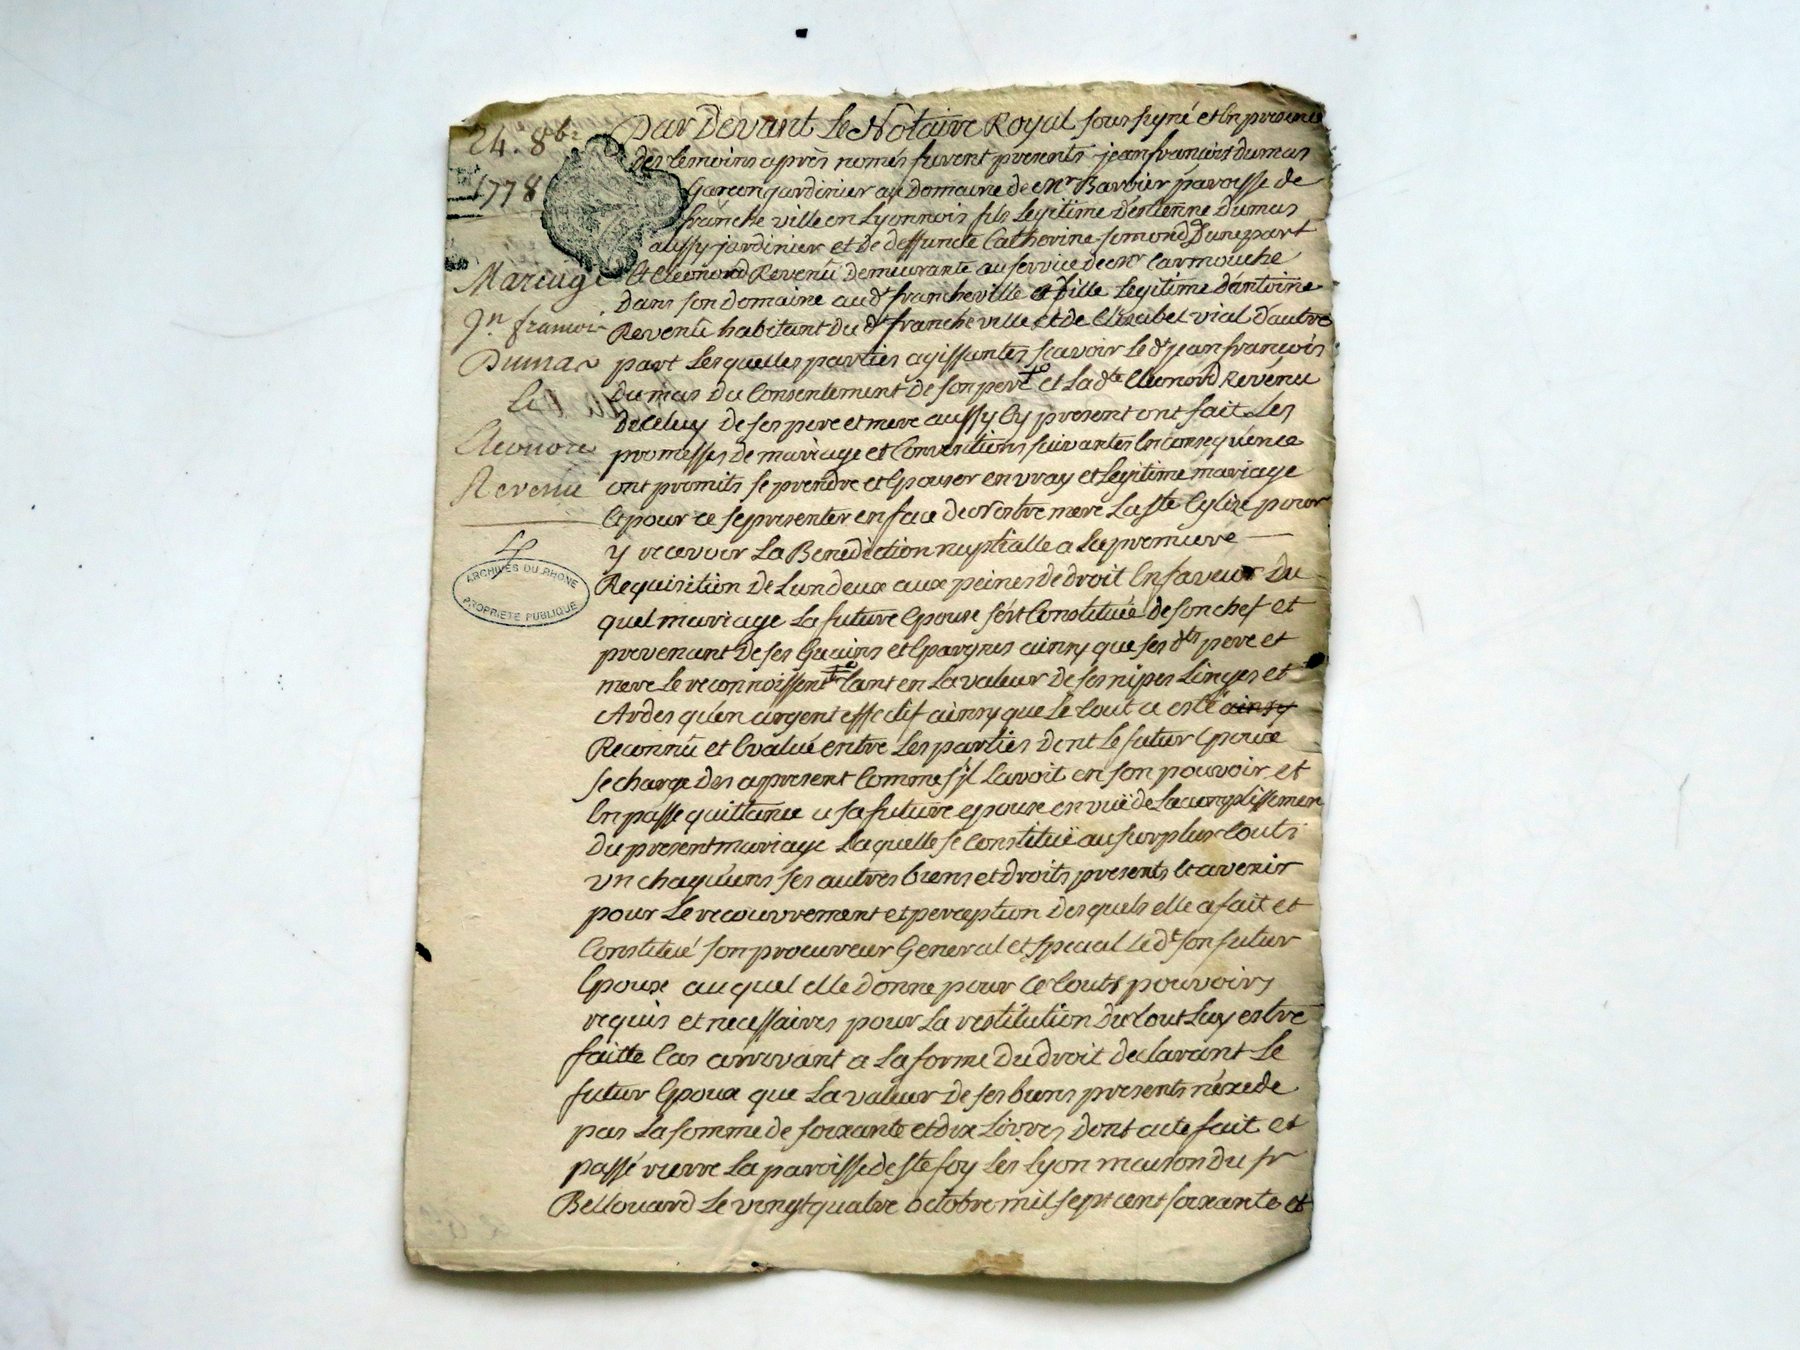 24. 8bre
1778
Mariage
Jn. francois
Dumas
Et
Eleonore
Revenu
ARCHIVES DU RHONE
PROPRIETE PUBLIQUE
Par Devant Le Notaire Royal soussigné et En presence
des temoins après només furent presents jean francois dumas
Garcon jardinier au Domaine de Mr Barbier paroisse de
francheville en Lyonnois fils Legitime d'estienne dumas
aussy jardinier et de deffuncte Catherine Simond D'une part
Et Eleonord Revenu demeurante au service de Mr Carmouche
dans son domaine aud. francheville et fille Legitime d'antoine
Revenu habitant du d. francheville et de Elisabet vial d'autre
part Lesquelles parties agissantes scavoir Le dt jean francois
Dumas du Consentement de son pere et La dte Eleonord Revenu
de Celuy de ses pere et mere aussy Cy present ont fait Les
promesses de mariage et Conventions suivantes En consequence
ont promits se prendre et Epouser en vray et Legitime mariage
Et pour ce se presenter en face de Nostre mere La Ste Eglise pour
y recevoir La Benediction nuptialle a La premiere
Requisition de L'un deux aux peines de droit En faveur Du
quel mariage La future Epouse s'est Constituée de son chef et
provenant de ses Guains et Epargnes ainsy que ses dts pere et
mere Le reconnoissent tant en La valeur de ses nipes Linges et
Ardes qu'en argent effectif ainsy que Le tout a esté ainsy
Reconnu et Evalué entre Les parties dont Le futur Epoux
se charge des apresent Comme s'il L'avoit en son pouvoir et
En passe quittance a sa future epouse en vuë de L'acomplissement
Du present mariage Laquelle se Constituë au surplus touts
un chaquuns ses autres biens et droits presents et avenir
pour Le recouvrement et perception desquels elle a fait et
Constitué son procureur General et special Le dt son futur
Epoux auquel elle donne pour Ce touts pouvoirs
requis et necessaires pour La restitution du tout Luy estre
faitte Cas arrivant a La forme Du droit declarant Le
futur Epoux que La valeur de ses biens presents n'exede
pas La somme de soixante et dix Livres dont acte fait et
passé rierre La paroisse de Ste foy Les Lyon maison du sr
Bellouard Le vingt quatre octobre mil sept cent soixante et